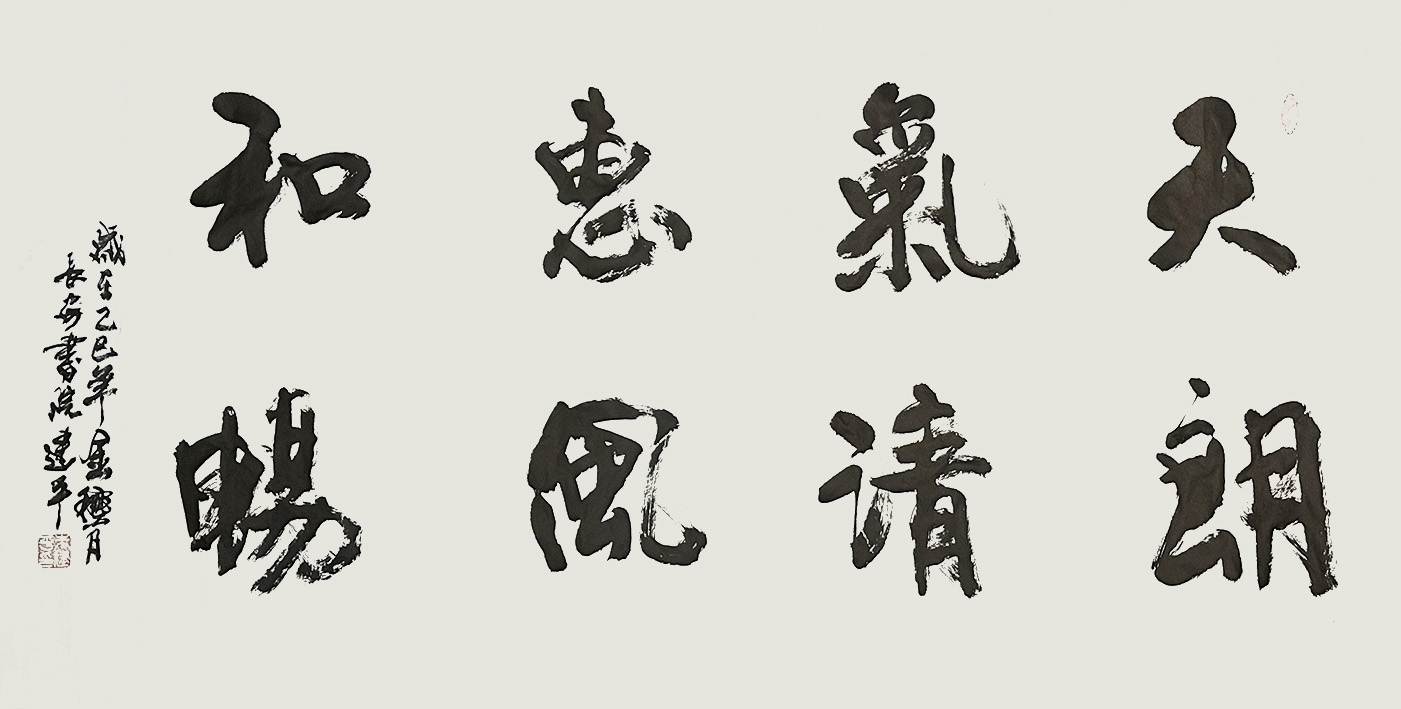 天朗
氣请
惠風
和暢
歲在乙巳年金月
長安書院建平